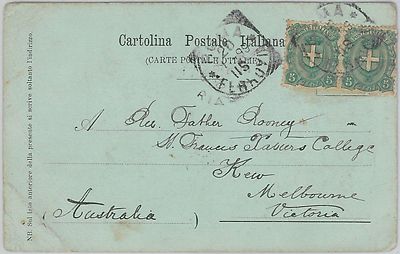 Cartolina Postale Italiana
(CARTE POSTALE D'ITALIE)
A Rev. Father Rooney
St. Francis Xaviers College
Kew
Melbourne
(Australia) Victoria
NB. Sul lato anteriore della presente si scrive soltanto l'indirizzo.
ROMA
FERROVIA
5 5 5 5